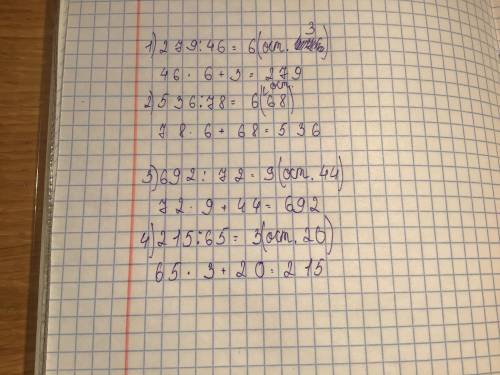 1) 279:46 = 6(ост. 3)
46 · 6 + 3 = 279
2) 536:78 = 6(ост. 68)
78 · 6 + 68 = 536
3) 692 : 72 = 9(ост. 44)
72 · 9 + 44 = 692
4) 215:65 = 3(ост. 20)
65 · 3 + 20 = 215